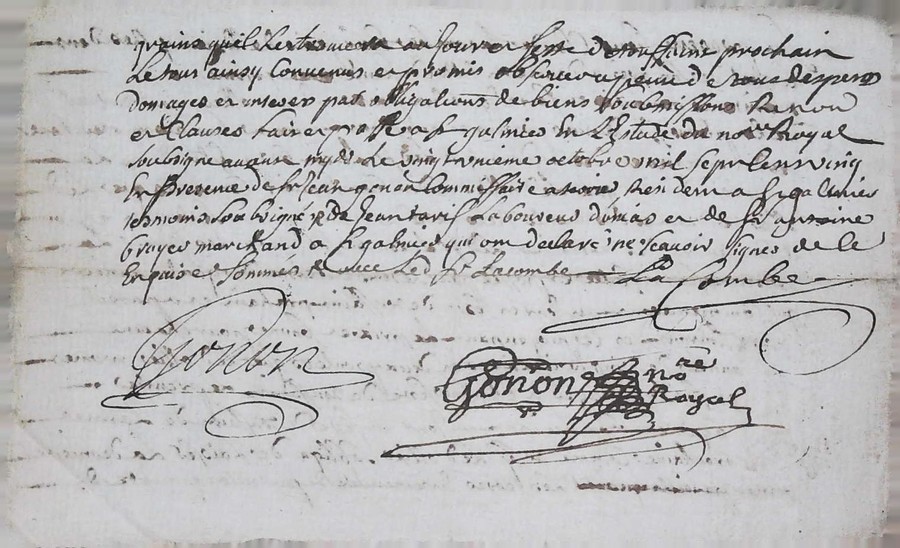 grains quil se trouvera au jour et feste de toussaint prochain
Le tout ainsy Convenus et promis observer a peine de tous despens
domages et interes par obligations de biens soubmissions Renon
et Clauses fait et passé a st galmier En L'Estude du nore Royal
soubsigne avant midy Le vingtunieme octobre mil sept cent vingt
En Presence de sr Jean gonon Commissaire a terrier Resident a st galmier
tesmoins soubsigné & de Jean Laboureur et de sr antoine
broyer marchand a st galmier qui ont declaré ne scavoir signer de ce
Enquis et sommés & avec Led sr Lacombe
La Combe
Gonon
Gonon nore
Royal